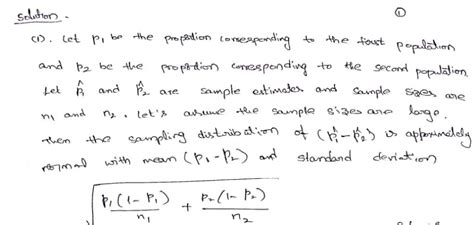 solution.
①
(1). Let p₁ be the propotion corresponding to the first population
and p₂ be the propotion corresponding to the second population.
Let p̂₁ and p̂₂ are sample estimates and sample sizes are
n₁ and n₂. Let's assume the sample sizes are large.
Then the sampling distribution of (p̂₁-p̂₂) is approximately
normal with mean (p₁-p₂) and standard deviation
√(p₁(1-p₁)/n₁ + p₂(1-p₂)/n₂)